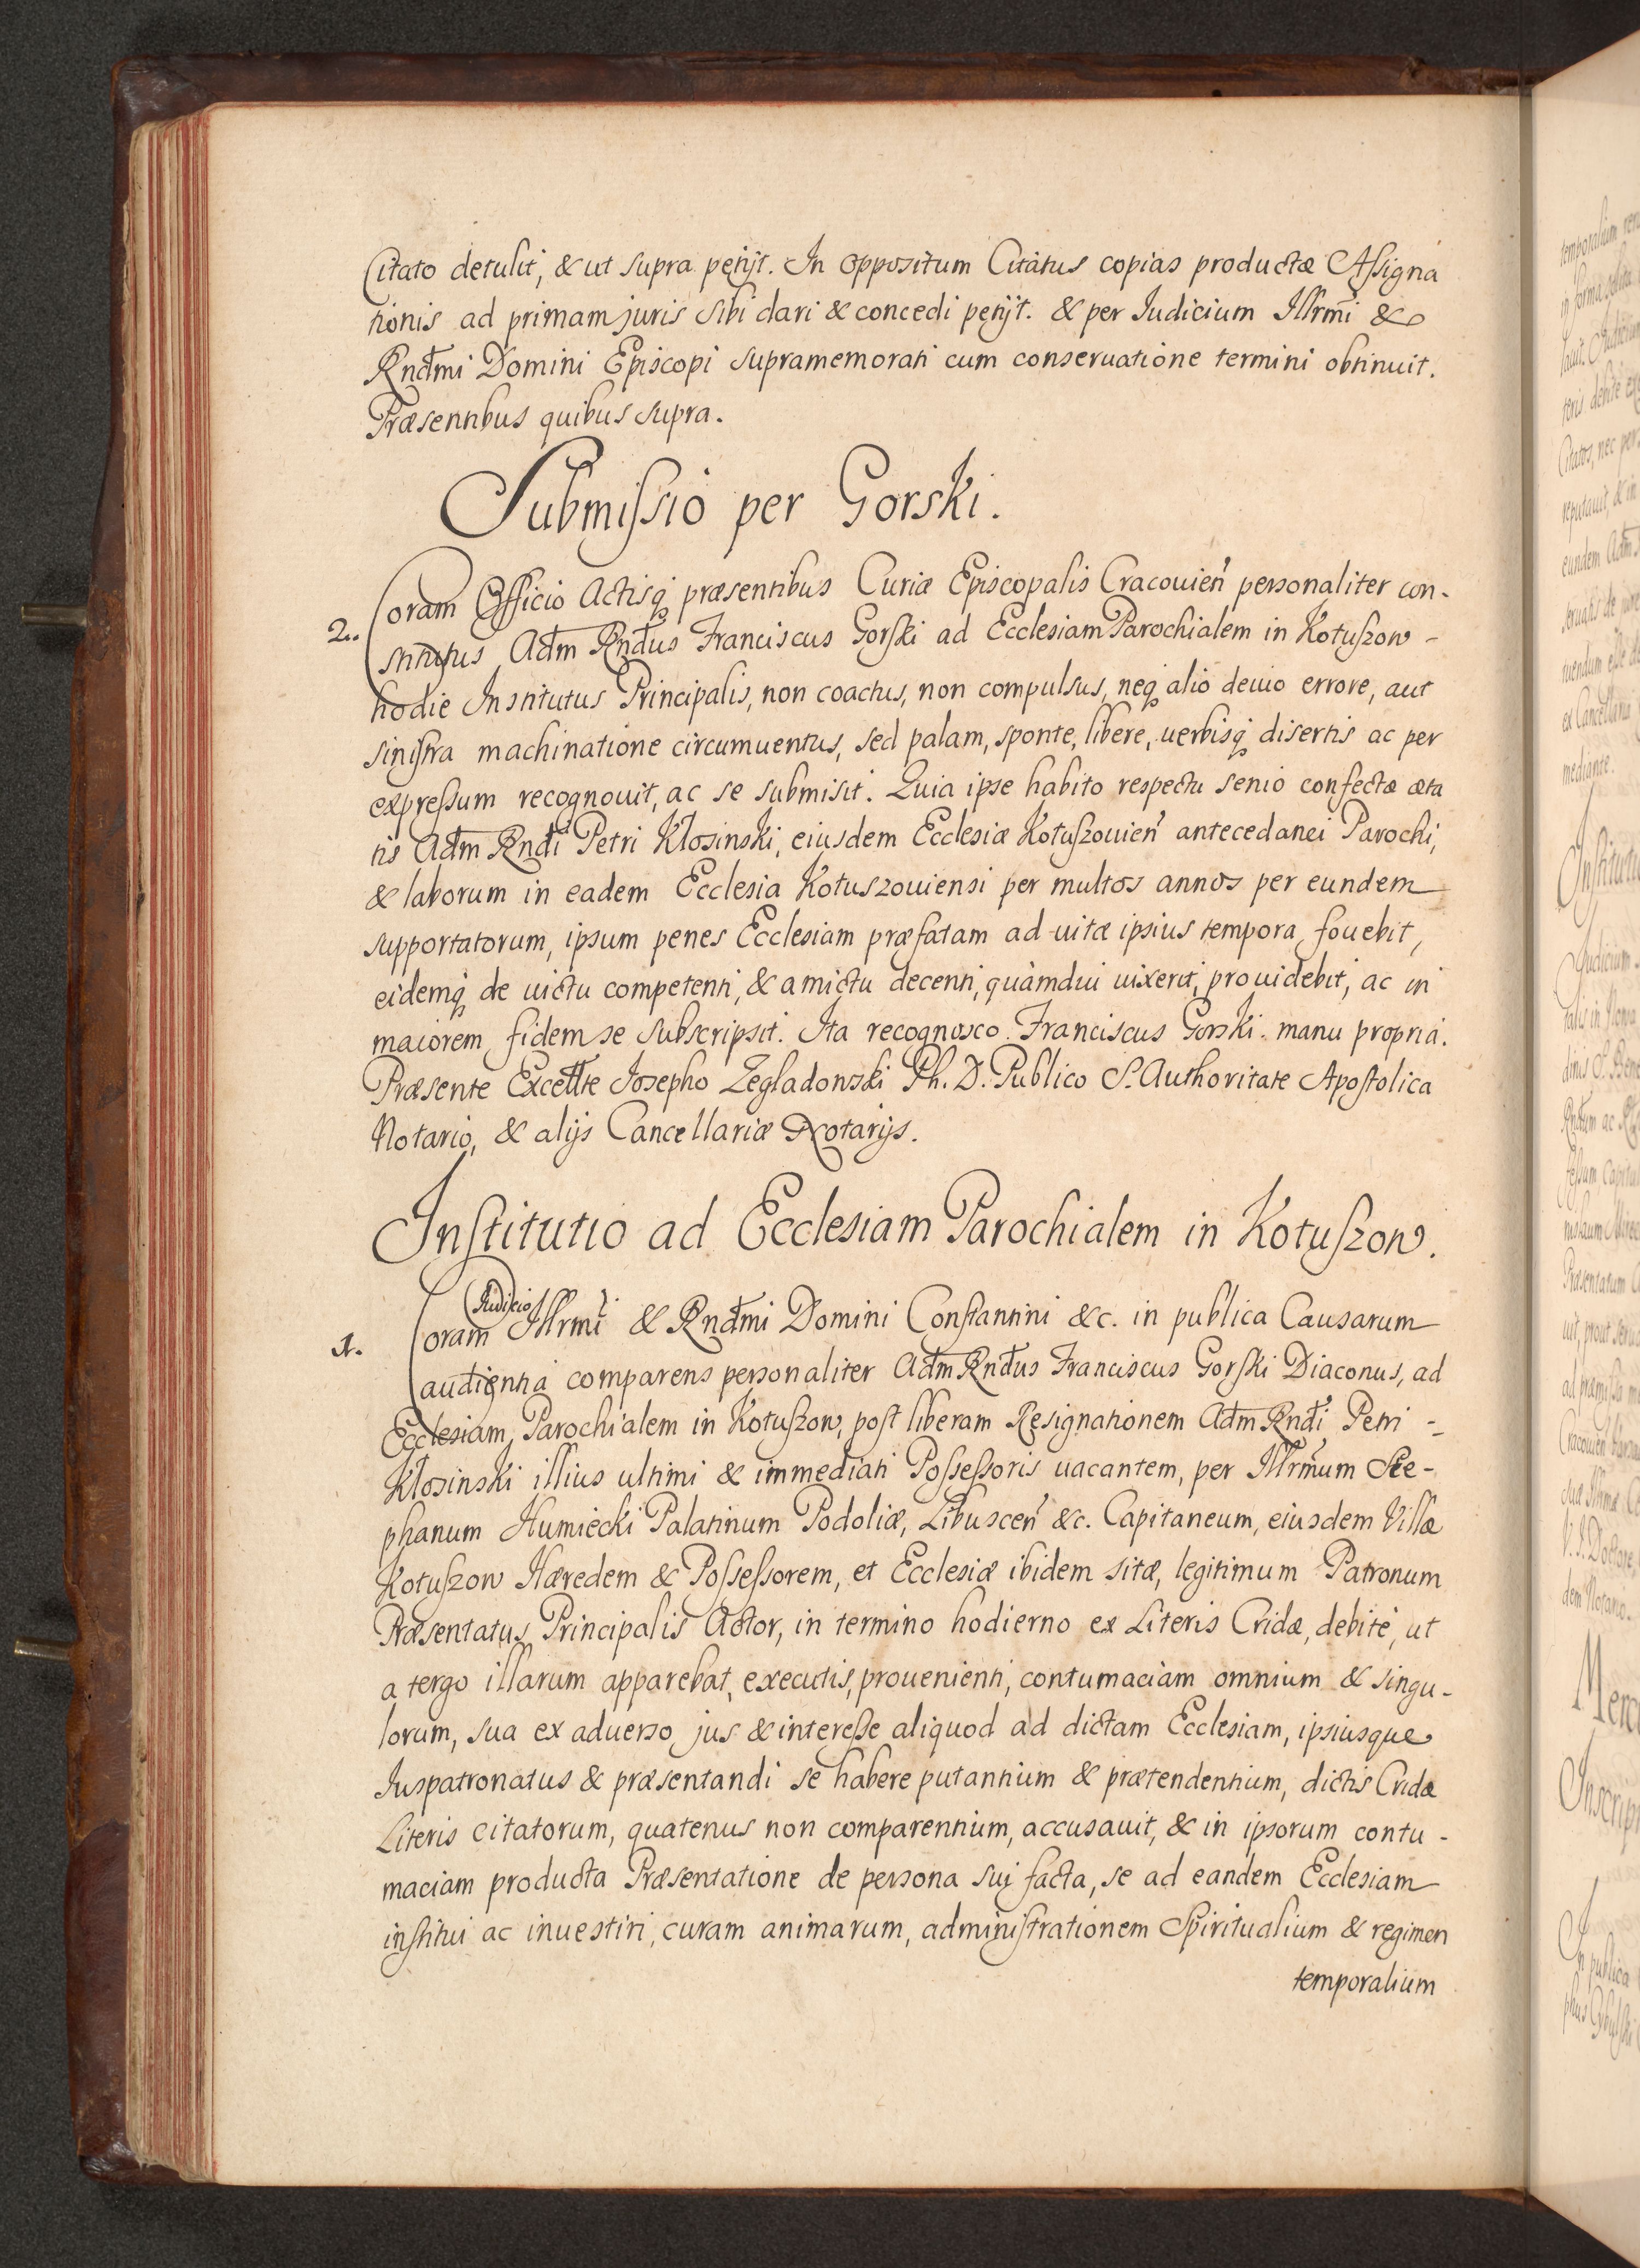 Citato detulit, & ut supra petijt. In oppositum Citatus copias productæ Assigna
tionis ad primam juris sibi dari & concedi petijt. & per Iudicium Illrm̃i &
Rnd̃mi Domini Episcopi supramemorati cum conseruatione termini obtinuit.
Præsentibus quibus supra.
Submissio per Gorski.
2. Coram Officio Actisq̃ præsentibus Curiæ Episcopalis Cracouien̄ personaliter con-
stitutus Ad̃m Rnd̃us Franciscus Gorski ad Ecclesiam Parochialem in Kotuszow -
hodie Institutus Principalis, non coactus, non compulsus, neq̃ alio deuio errore, aut
sinistra machinatione circumuentus, sed palam, sponte, libere, uerbisq̃ disertis ac per
expressum recognouit, ac se submisit. Quia ipse habito respectu senio confectæ æta
tis Ad̃m Rnd̃i Petri Kłosinski, eiusdem Ecclesiæ Kotuszouien̄ antecedanei Parochi,
& laborum in eadem Ecclesia Kotuszouiensi per multos annos per eundem
supportatorum, ipsum penes Ecclesiam præfatam ad uitæ ipsius tempora fouebit,
eidemq̃ de uictu competenti, & amictu decenti, quàmdiu uixerit, prouidebit, ac in
maiorem fidem se subscripsit. Ita recognosco Franciscus Gorski manu propria.
Præsente Excellte Josepho Zegladonski Ph. D. Publico S. Authoritate Apostolica
Notario, & alijs Cancellariæ Notarijs.
Institutio ad Ecclesiam Parochialem in Kotuszow.
Judicio
1. Coram Illrm̃i & Rnd̃mi Domini Constantini &c. in publica Causarum
audientia comparens personaliter Ad̃m Rnd̃us Franciscus Gorski Diaconus, ad
Ecclesiam Parochialem in Kotuszow, post liberam Resignationem Ad̃m Rnd̃i Petri -
Kłosinski illius ultimi & immediati Possessoris uacantem, per Illrm̃um Ste-
phanum Humiecki Palatinum Podoliæ, Libuscen̄ &c. Capitaneum, eiusdem Villæ
Kotuszow Hæredem & Possessorem, et Ecclesiæ ibidem sitæ, legitimum Patronum
Præsentatus Principalis Actor, in termino hodierno ex Literis Cridæ, debitè, ut
a tergo illarum apparebat, executis, prouenienti, contumaciam omnium & singu-
lorum, sua ex aduerso jus & interesse aliquod ad dictam Ecclesiam, ipsiusque
Iuspatronatus & præsentandi se habere putantium & prætendentium, dictis Cridæ
Literis citatorum, quatenus non comparentium, accusauit, & in ipsorum contu-
maciam producta Præsentatione de persona sui facta, se ad eandem Ecclesiam
institui ac inuestiri, curam animarum, administrationem Spiritualium & regimen
temporalium